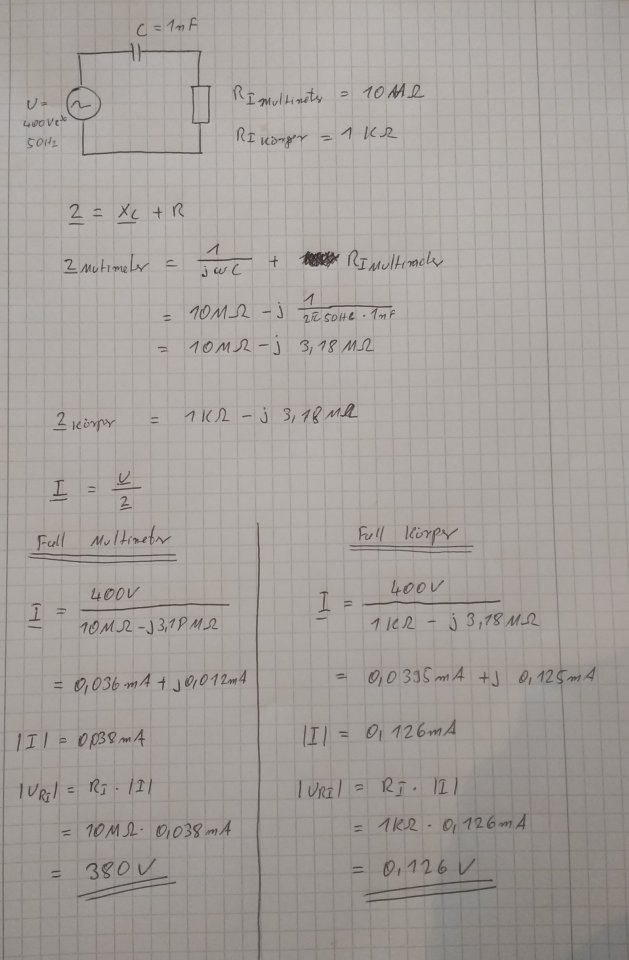 C = 1nF
U =
400V
50Hz
R_I Multimeter = 10MΩ
R_I Körper = 1KΩ
Z = X_C + R
Z Multimeter = 1/(jωC) + R_I Multimeter
= 10MΩ - j 1/(2π 50Hz · 1nF)
= 10MΩ - j 3,18 MΩ
Z Körper = 1KΩ - j 3,18 MΩ
I = U/Z
Fall Multimeter
I = 400V/(10MΩ - j3,18 MΩ)
= 0,036 mA + j0,012 mA
|I| = 0,038 mA
|U_RI| = R_I · |I|
= 10MΩ · 0,038 mA
= 380V
Fall Körper
I = 400V/(1KΩ - j 3,18 MΩ)
= 0,0395 mA + j 0,125 mA
|I| = 0,126 mA
|U_RI| = R_I · |I|
= 1KΩ · 0,126 mA
= 0,126 V